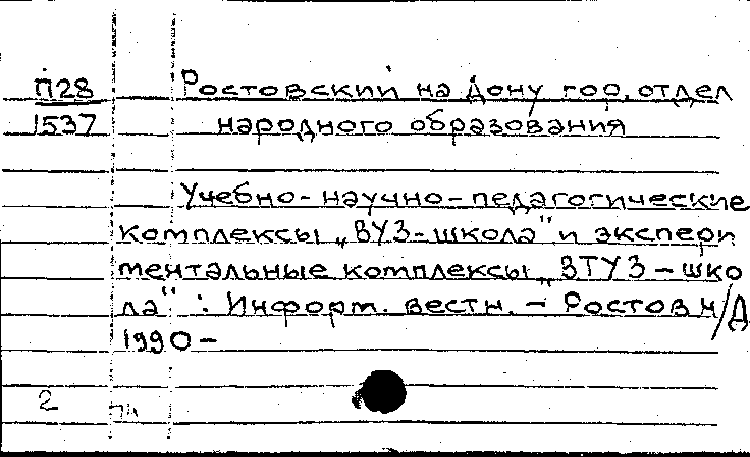 П28 Ростовский на Дону гор. отдел
1537 народного образования
Учебно-научно-педагогические
комплексы „ВУЗ-школа" и экспери
ментальные комплексы „ВТУЗ-шко
ла" : Информ. вестн. - Ростов н/Д
1990-
2